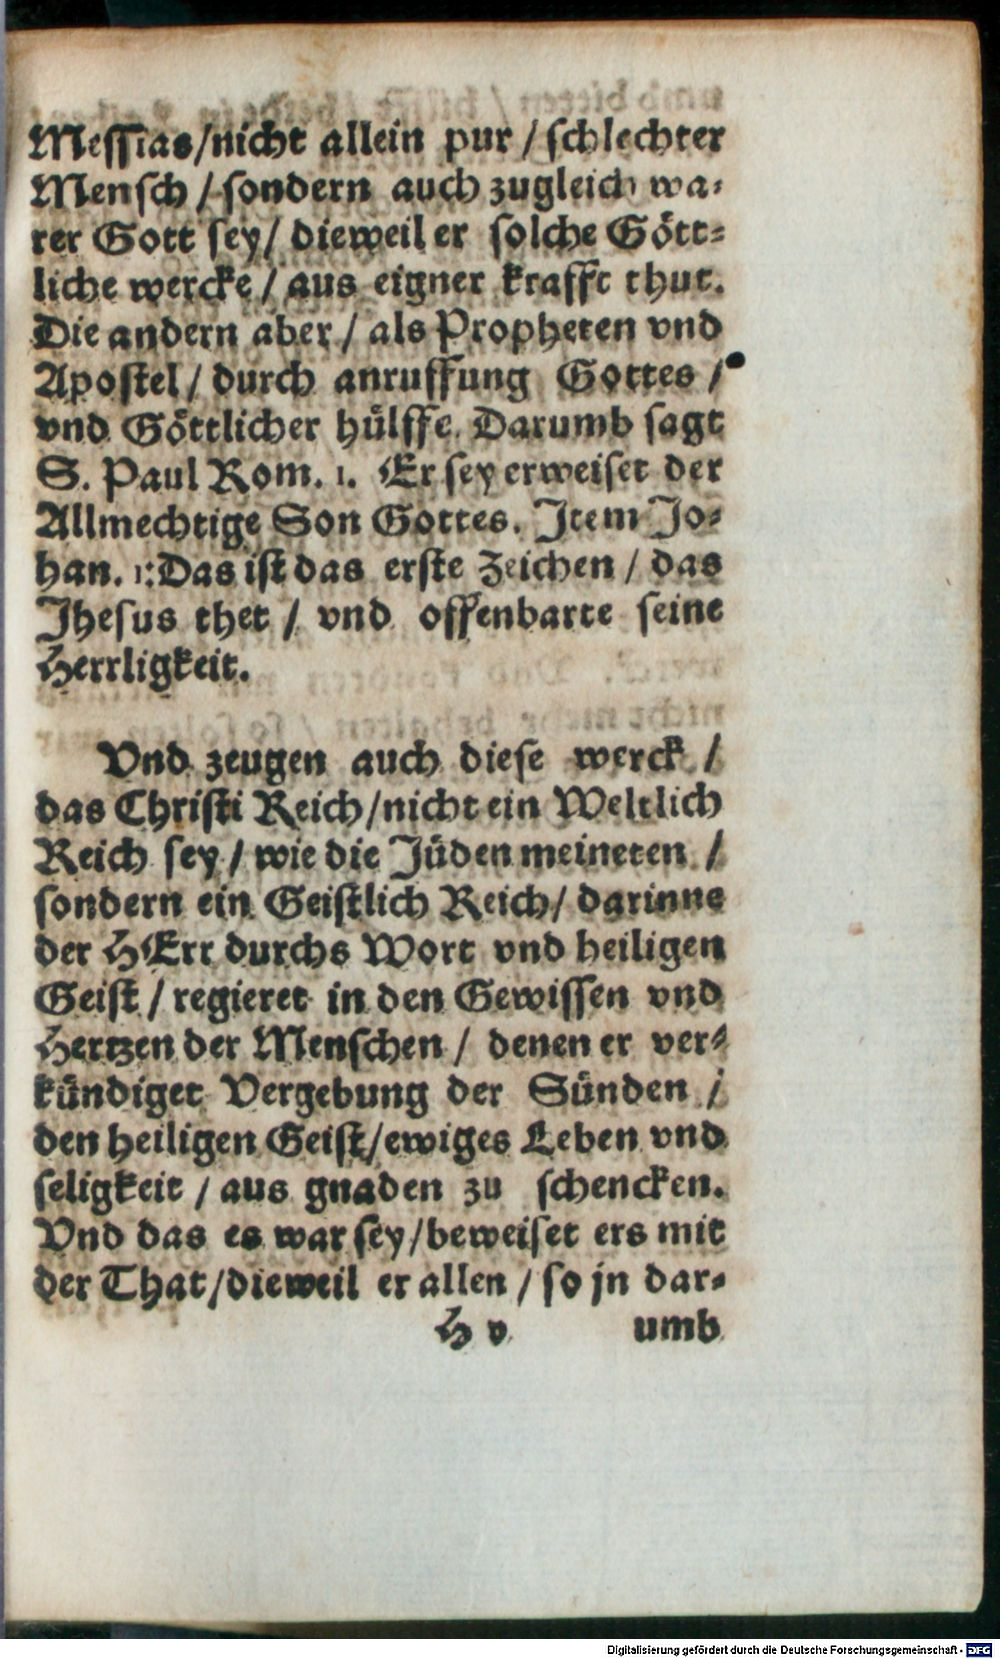 Messias/nicht allein pur / schlechter
Mensch / sondern auch zugleich wa-
rer Gott sey/ dieweil er solche Gött-
liche wercke / aus eigner krafft thut.
Die andern aber / als Propheten vnd
Apostel / durch anruffung Gottes /
vnd Göttlicher hülffe. Darumb sagt
S. Paul Rom. 1. Er sey erweiset der
Allmechtige Son Gottes. Item Jo-
han. 1: Das ist das erste Zeichen / das
Jhesus thet / vnd offenbarte seine
Herrligkeit.
Vnd zeugen auch diese werck /
das Christi Reich/nicht ein Weltlich
Reich sey / wie die Jüden meineten /
sondern ein Geistlich Reich/ darinne
der HErr durchs Wort vnd heiligen
Geist / regieret in den Gewissen vnd
Hertzen der Menschen / denen er ver-
kündiget Vergebung der Sünden /
den heiligen Geist/ewiges Leben vnd
seligkeit / aus gnaden zu schencken.
Vnd das es war sey/beweiset ers mit
der That/dieweil er allen / so jn dar-
H v umb
Digitalisierung gefördert durch die Deutsche Forschungsgemeinschaft - DFG